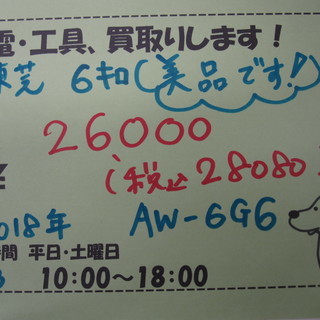 電・工具、買取りします！
東芝 6キロ(美品です!!)
26000
(税込 28080
2018年 AW-6G6
時間 平日・土曜日
10:00〜18:00